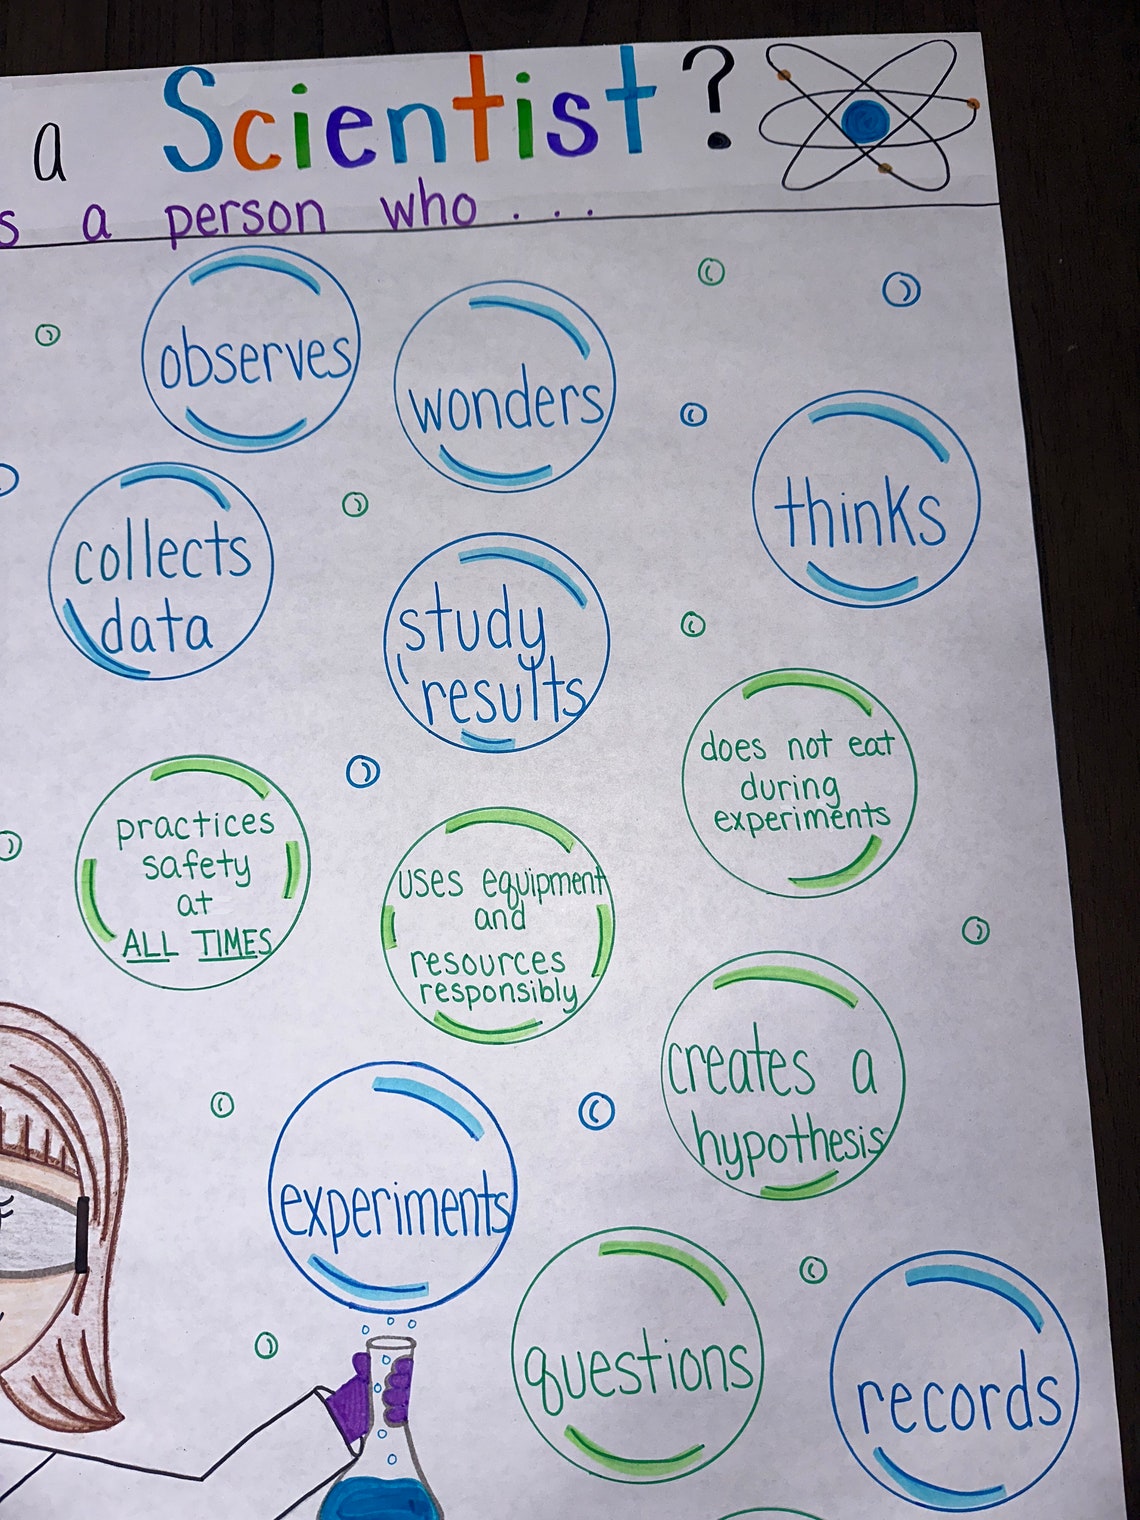 a Scientist?
s a person who . . .
observes
wonders
thinks
collects
data
study
results
does not eat
during
experiments
practices
safety
at
ALL TIMES
uses equipment
and
resources
responsibly
creates a
hypothesis
experiments
questions
records